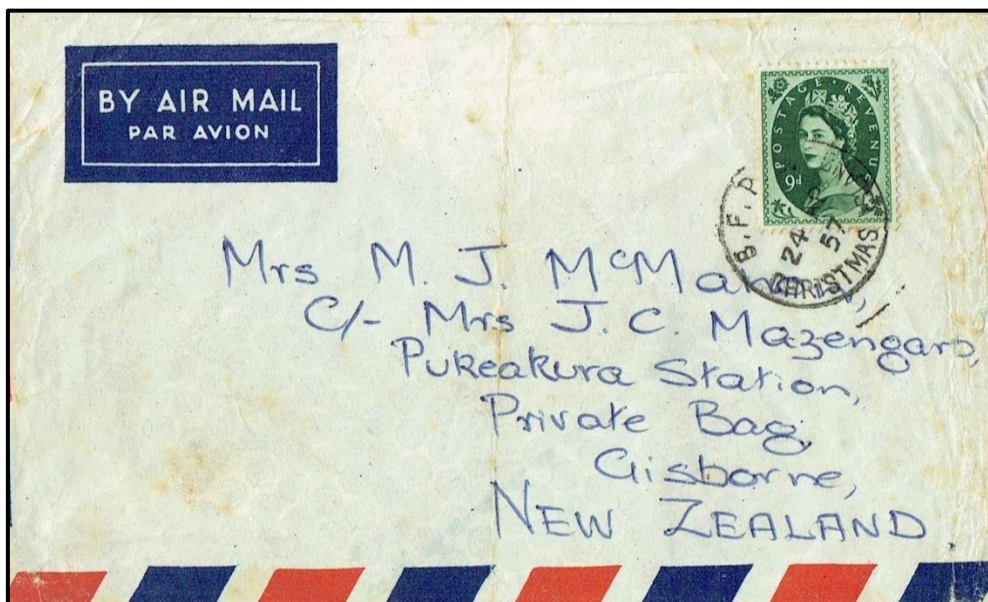 BY AIR MAIL
PAR AVION
POSTAGE REVENUE
9d
B.F.P.
24 AP
57
CHRISTMAS
Mrs M. J.
C/- Mrs J. C. Mazengarb,
Pukeakura Station,
Private Bag,
Gisborne,
NEW ZEALAND.